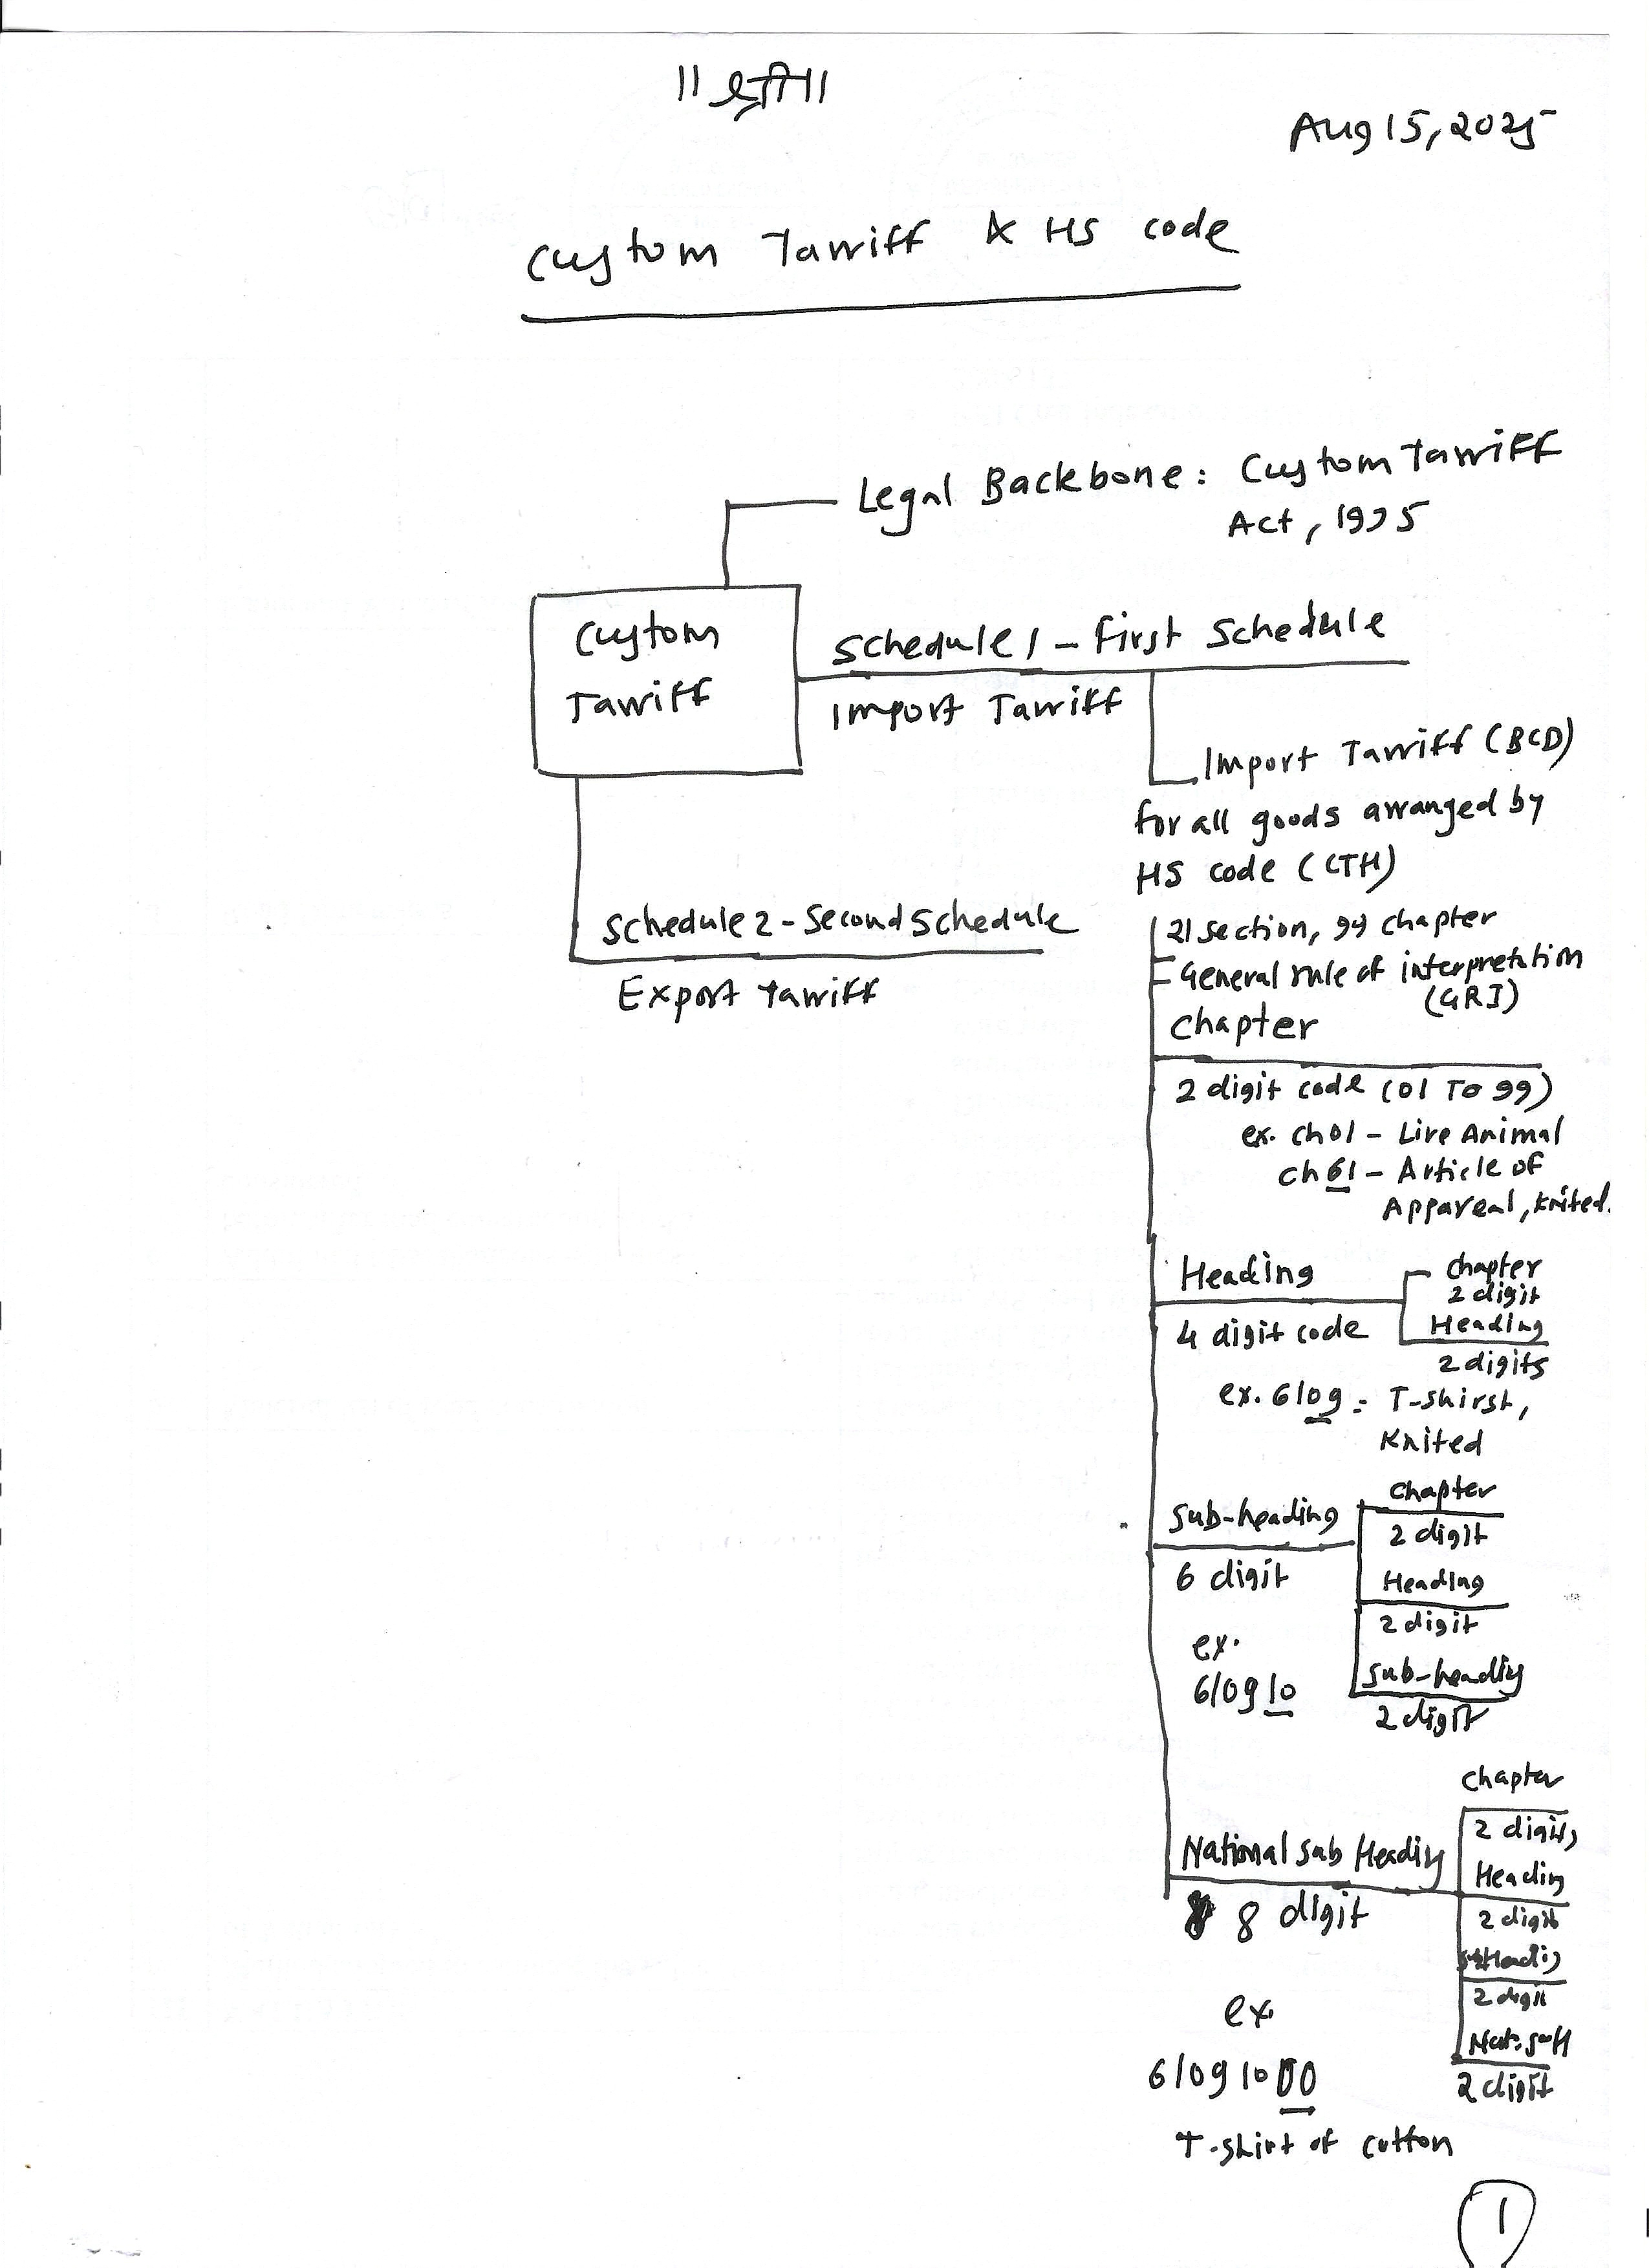 ॥ श्री ॥
Aug 15, 2025
Custom Tarriff & HS code
Legal Backbone: Custom Tarriff
Act, 1975
Custom
Tarriff
Schedule 1 - First Schedule
Import Tarriff
Import Tarriff (BCD)
for all goods arranged by
HS code (CTH)
Schedule 2 - Second Schedule
Export Tarriff
21 section, 99 chapter
General rule of interpretation
(GRI)
Chapter
2 digit code (01 To 99)
ex. ch01 - Live Animal
ch 61 - Article of
Appareal, Knited.
Heading
4 digit code
Chapter
2 digit
Heading
2 digits
ex. 6109 - T-shirst,
Knited
Sub-heading
6 digit
Chapter
2 digit
Heading
2 digit
Sub-heading
2 digit
ex.
610910
National Sub Heading
8 digit
Chapter
2 digits
Heading
2 digit
SubHeadig
2 digit
Nat. SubH
2 digit
ex.
61091000
T-shirt of cotton
1